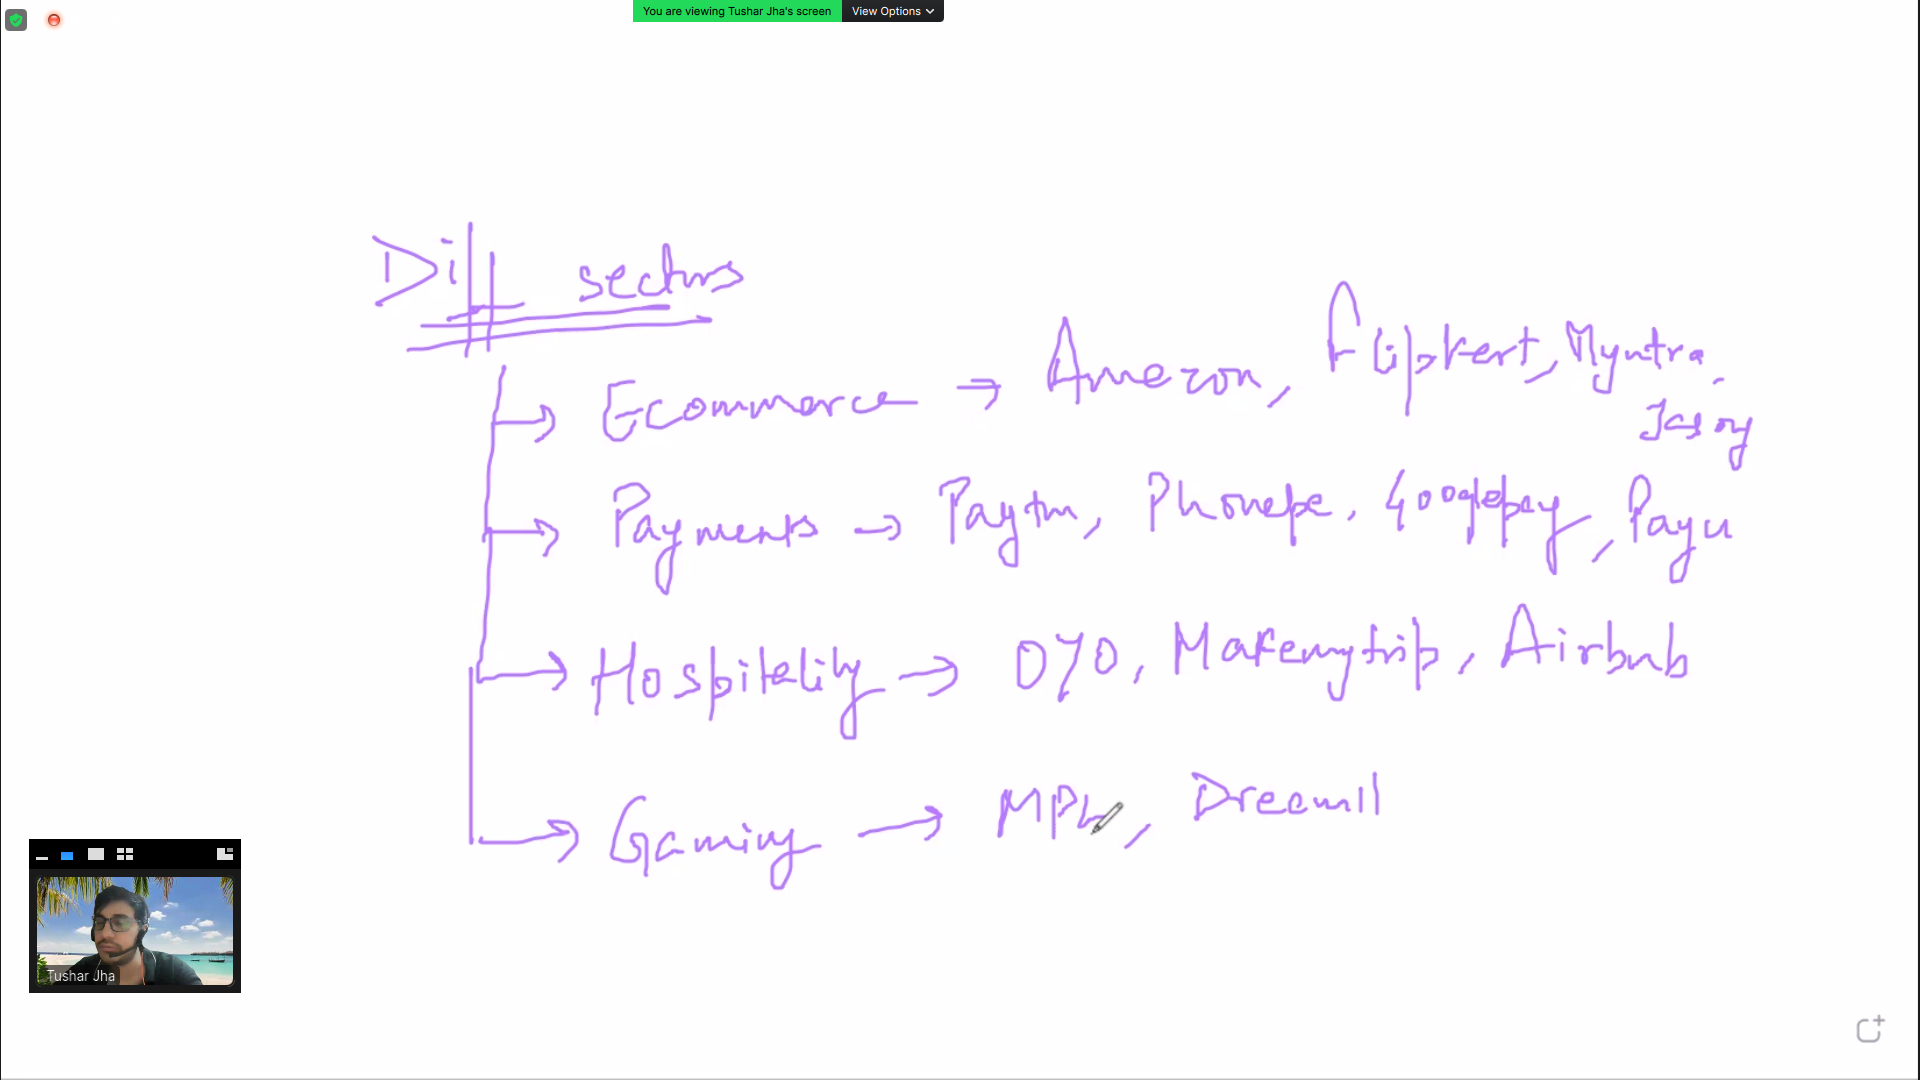 You are viewing Tushar Jha's screen View Options
Diff sectors
Ecommerce → Amazon, Flipkart, Myntra,
Payments → Paytm, Phonepe, Googlepay, Payu
Hospitality → OYO, Makemytrip, Airbnb
Gaming → MPL, Dream11
Tushar Jha